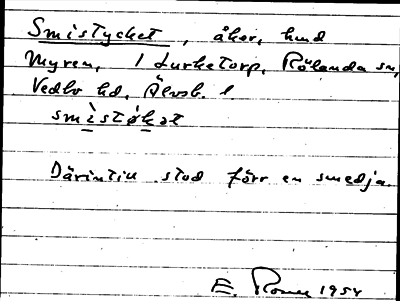 Smistycket, åker, hmd
Myren, 1 Lurketorp, Rölanda sn,
Vedbo hd, Älvsb. l.
smìstykət
Därintill stod förr en smedja.
E. 1954